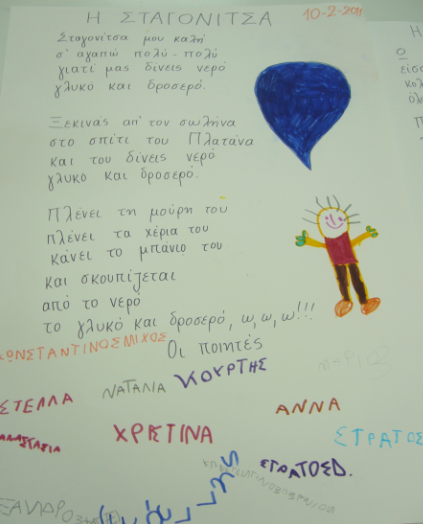 Η ΣΤΑΓΟΝΙΤΣΑ
10-2-2011
Σταγονίτσα μου καλή
σ' αγαπώ πολύ - πολύ
γιατί μας δίνεις νερό
γλυκό και δροσερό.
Ξεκινάς απ' τον σωλήνα
στο σπίτι του Πλατάνα
και του δίνεις νερό
γλυκό και δροσερό.
Πλένει τη μούρη του
πλένει τα χέρια του
κάνει το μπάνιο του
και σκουπίζεται
από το νερό
το γλυκό και δροσερό, ω, ω, ω!!!
Οι ποιητές
ΚΩΝΣΤΑΝΤΙΝΟΣΜΙΧΟΣ
ΜΑΡΙΟΣ
ΝΑΤΑΛΙΑ
ΚΟΥΡΤΗΣ
ΣΤΕΛΛΑ
ΑΝΝΑ
ΑΝΑΣΤΑΣΙΑ
ΧΡΙΣΤΙΝΑ
ΣΤΡΑΤΟΣ
ΣΤΡΑΤΟΣΔ.